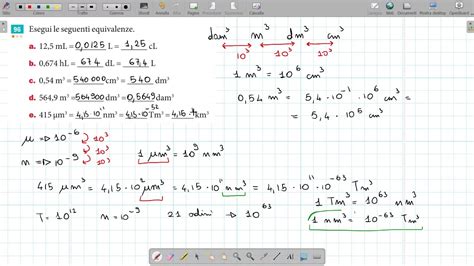 96 Esegui le seguenti equivalenze.
a. 12,5 mL = 0,0125 L = 1,25 cL
b. 0,674 hL = 674 dL = 67,4 L
c. 0,54 m³ = 540000 cm³ = 540 dm³
d. 564,9 m³ = 564900 dm³ = 0,5649 dam³
e. 415 μm³ = 4,15·10¹¹ nm³ = 4,15·10⁻⁵² Tm³ = 4,15· km³
dam³ m³ dm³ cm³
10³ 10³ 10³
1 m³ = 10⁶ cm³
0,54 m³ = 5,4·10⁻¹·10⁶ cm³ =
= 5,4·10⁵ cm³
μ ⇒ 10⁻⁶
10³
n ⇒ 10⁻⁹ 10³
1 μm³ = 10⁹ nm³
415 μm³ = 4,15·10² μm³ = 4,15·10¹¹ nm³ = 4,15·10¹¹·10⁻⁶³ Tm³
1 Tm³ = 10⁶³ nm³
T = 10¹² n = 10⁻⁹ 21 ordini → 10⁶³
1 nm³ = 10⁻⁶³ Tm³